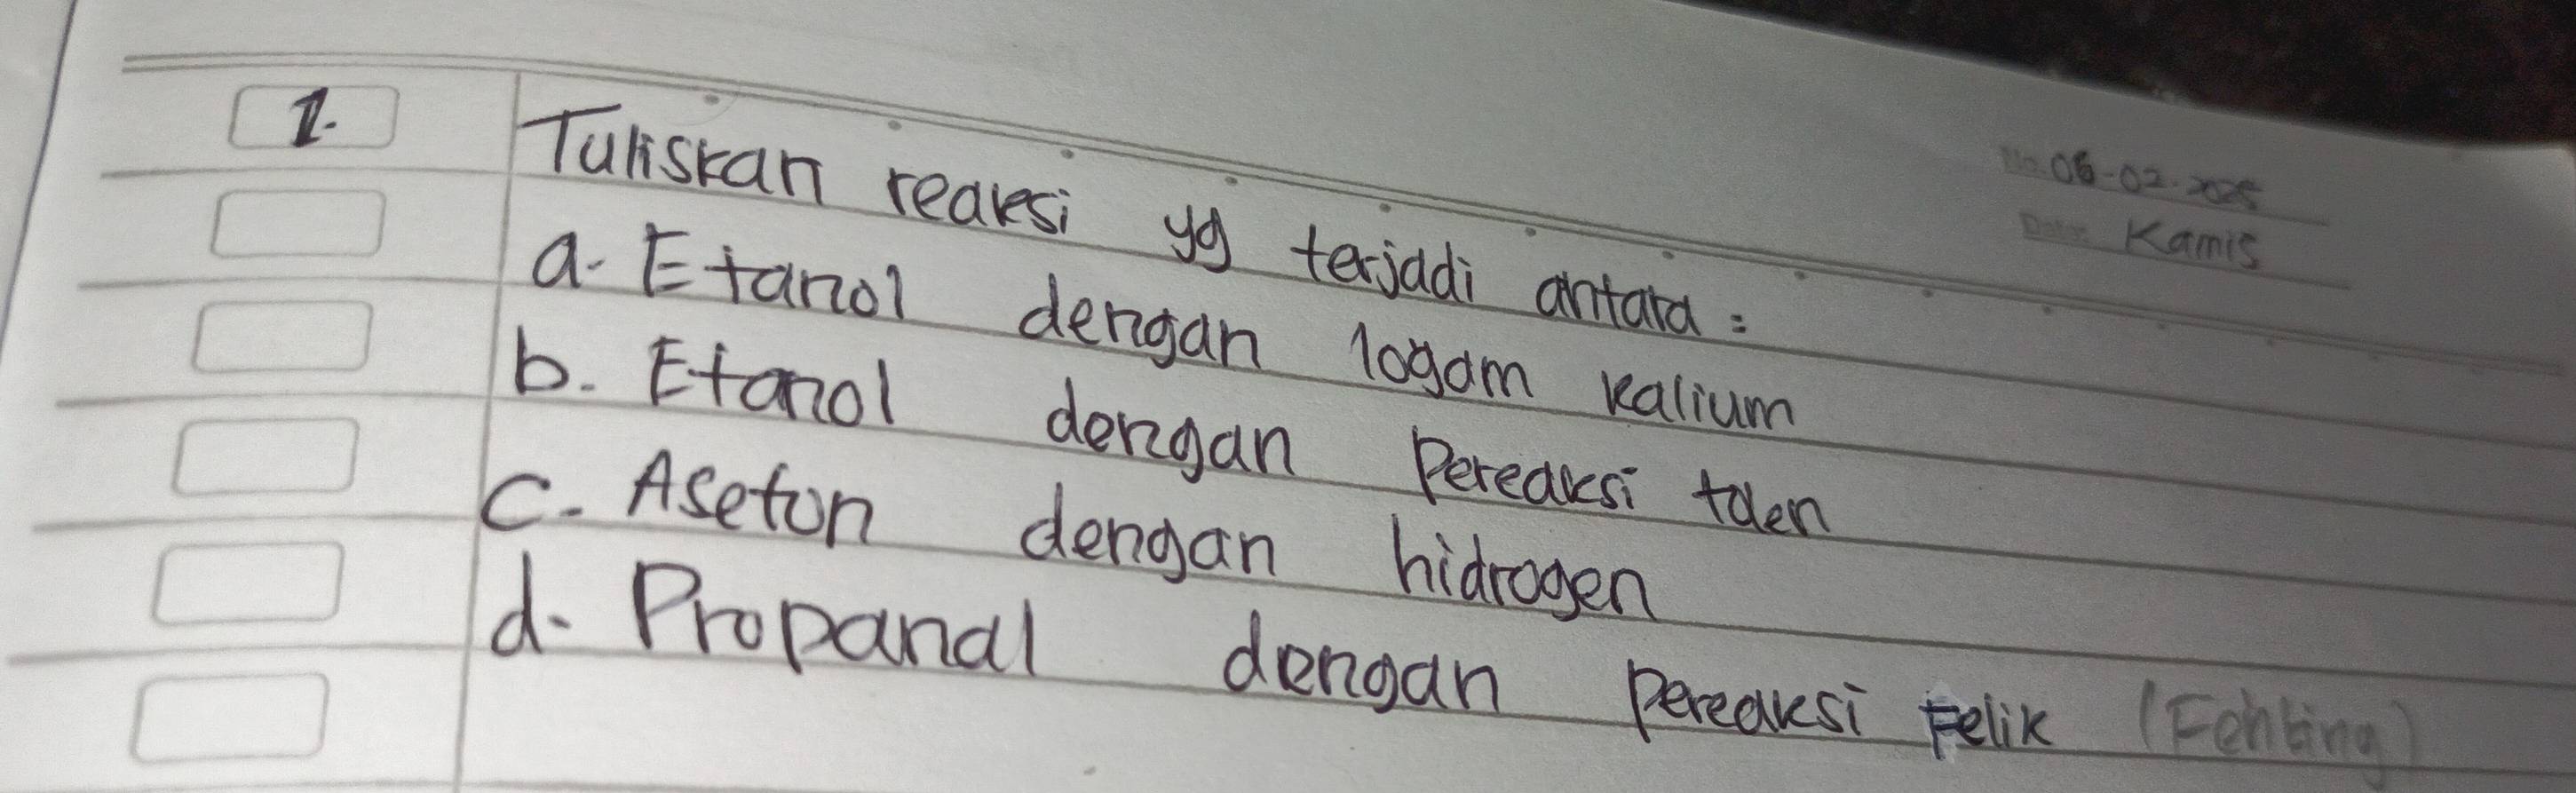 No. 06-02-2025
Date: Kamis
1. Tuliskan reaksi yg terjadi antara :
a. Etanol dengan logam kalium
b. Etanol dengan Pereaksi tolen
c. Aseton dengan hidrogen
d. Propanal dengan Pereaksi Felik (Fehling)